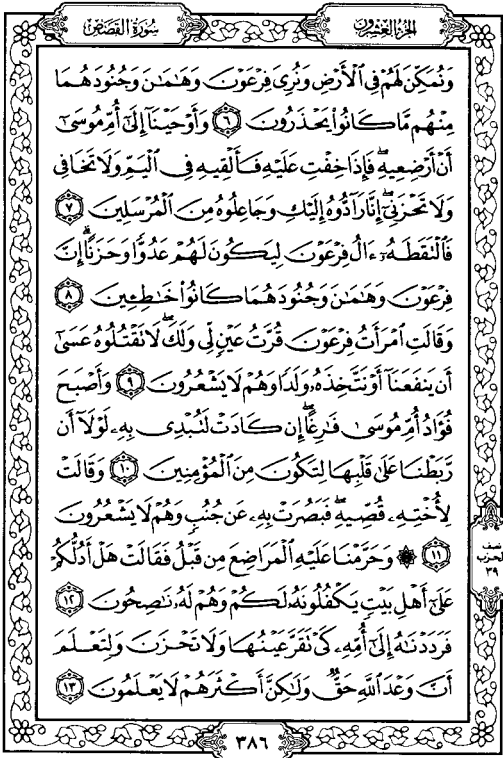 الجزء العشرون
سورة القصص
وَنُمَكِّنَ لَهُمْ فِي الْأَرْضِ وَنُرِيَ فِرْعَوْنَ وَهَامَانَ وَجُنُودَهُمَا
مِنْهُم مَّا كَانُوا يَحْذَرُونَ ٦ وَأَوْحَيْنَا إِلَىٰ أُمِّ مُوسَىٰ
أَنْ أَرْضِعِيهِ ۖ فَإِذَا خِفْتِ عَلَيْهِ فَأَلْقِيهِ فِي الْيَمِّ وَلَا تَخَافِي
وَلَا تَحْزَنِي ۖ إِنَّا رَادُّوهُ إِلَيْكِ وَجَاعِلُوهُ مِنَ الْمُرْسَلِينَ ٧
فَالْتَقَطَهُ ءَالُ فِرْعَوْنَ لِيَكُونَ لَهُمْ عَدُوًّا وَحَزَنًا ۗ إِنَّ
فِرْعَوْنَ وَهَامَانَ وَجُنُودَهُمَا كَانُوا خَاطِئِينَ ٨
وَقَالَتِ امْرَأَتُ فِرْعَوْنَ قُرَّتُ عَيْنٍ لِّي وَلَكَ ۖ لَا تَقْتُلُوهُ عَسَىٰ
أَن يَنفَعَنَا أَوْ نَتَّخِذَهُ وَلَدًا وَهُمْ لَا يَشْعُرُونَ ٩ وَأَصْبَحَ
فُؤَادُ أُمِّ مُوسَىٰ فَارِغًا ۖ إِن كَادَتْ لَتُبْدِي بِهِ لَوْلَا أَن
رَّبَطْنَا عَلَىٰ قَلْبِهَا لِتَكُونَ مِنَ الْمُؤْمِنِينَ ١٠ وَقَالَتْ
لِأُخْتِهِ قُصِّيهِ ۖ فَبَصُرَتْ بِهِ عَن جُنُبٍ وَهُمْ لَا يَشْعُرُونَ
١١ ۞ وَحَرَّمْنَا عَلَيْهِ الْمَرَاضِعَ مِن قَبْلُ فَقَالَتْ هَلْ أَدُلُّكُمْ
عَلَىٰ أَهْلِ بَيْتٍ يَكْفُلُونَهُ لَكُمْ وَهُمْ لَهُ نَاصِحُونَ ١٢
فَرَدَدْنَاهُ إِلَىٰ أُمِّهِ كَيْ تَقَرَّ عَيْنُهَا وَلَا تَحْزَنَ وَلِتَعْلَمَ
أَنَّ وَعْدَ اللَّهِ حَقٌّ وَلَٰكِنَّ أَكْثَرَهُمْ لَا يَعْلَمُونَ ١٣
نصف
الحزب
٣٩
٣٨٦